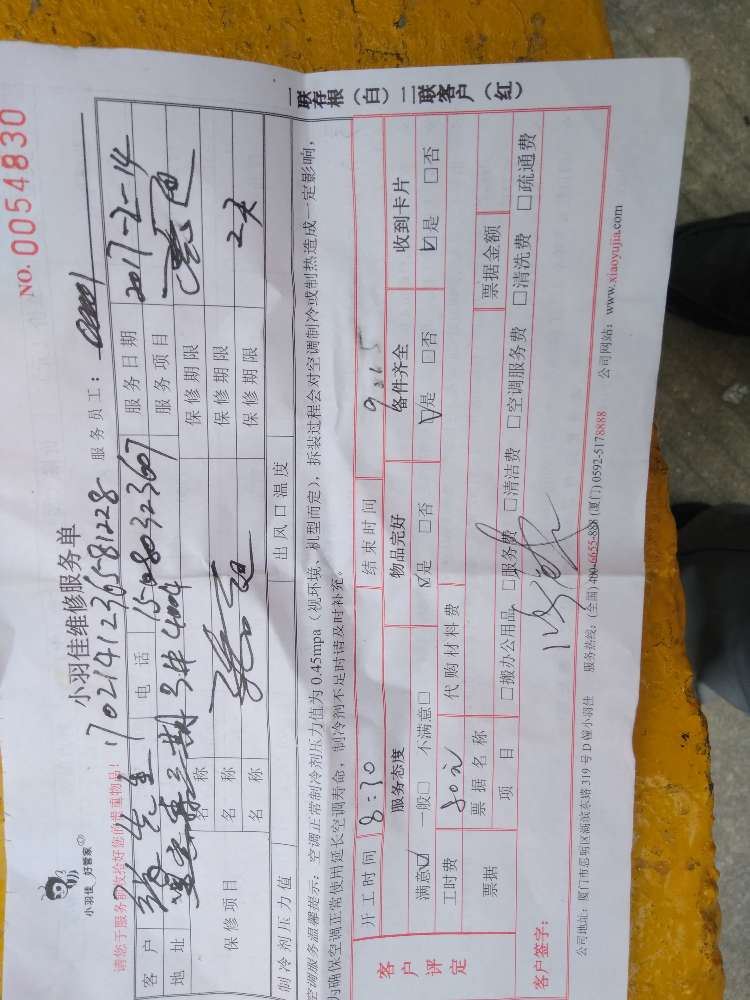 小羽佳 好管家
小羽佳维修服务单
NO. 0054830
请您于服务前收拾好您的贵重物品!
17021412365581228
服务员工:
客户 先生 电话 15080323607 服务日期 2017-2-14
地址 期3#4004 服务项目
保修项目 名称 保修期限
名称 保修期限
名称 保修期限 2天
制冷剂压力值 出风口温度
空调服务温馨提示:空调正常制冷剂压力值为0.45mpa(视环境、机型而定),拆装过程会对空调制冷或制热造成一定影响,
为确保空调正常使用延长空调寿命,制冷剂不足时请及时补充。
一联存根(白)二联客户(红)
开工时间 8:30 结束时间 9
客户评定
服务态度 物品完好 备件齐全 收到卡片
满意☑ 一般□ 不满意□ ☑是 □否 ☑是 □否 ☑是 □否
工时费 80元 代购材料费
票据 票据名称 票据金额
项目 □搬办公用品 □服务费 □清洁费 □空调服务费 □清洗费 □疏通费
客户签字:
公司地址:厦门市思明区湖滨东路319号D幢小羽佳 服务热线:(全国)400-6655-888 (厦门)0592-5178888 公司网站:www.xiaoyujia.com